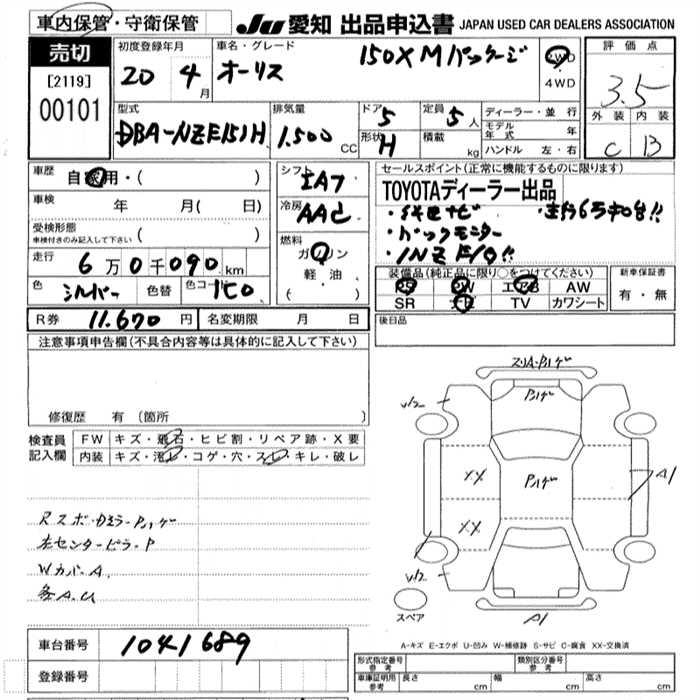 車内保管・守衛保管
JU 愛知 出品申込書 JAPAN USED CAR DEALERS ASSOCIATION
売切
[2119]
00101
初度登録年月
20 4月
車名・グレード
オーリス 150X Mパッケージ
2WD
4WD
評価点
3.5
外装 内装
C B
型式
DBA-NZE151H
排気量
1.500 CC
ドア 5
形状 H
定員 5人
積載 kg
ディーラー・並行
モデル年式 年
ハンドル 左・右
車歴 自家用・( )
車検 年 月( 日)
受検形態
車検付きのみ記入して下さい ( )
走行 6万0千090km
色 シルバー 色替 色コード 1C0
シフト IAT
冷房 AAC
燃料
ガソリン
軽・油
( )
セールスポイント(正常に機能するものに限ります)
TOYOTAディーラー出品
・バックモニター
装備品(純正品に限り○をつけてください)
PS PW エアB AW
SR ナビ TV カワシート
新車保証書
有・無
R券 11.670円 名変期限 月 日
後日品
注意事項申告欄(不具合内容等は具体的に記入して下さい)
修復歴 有 (箇所
検査員記入欄
FW キズ・飛石・ヒビ割・リペア跡・X要
内装 キズ・汚レ・コゲ・穴・スレ・キレ・破レ
左センターピラーP
WカバーA.
各A.U
車台番号 1041689
登録番号
P.ハゲ
P.ハゲ
XX
XX
A1
A1
スペア
A-キズ E-エクボ U-凹み W-補修跡 S-サビ C-腐食 XX-交換済
型式指定番号 参考
類別区分番号 参考
車庫証明用 参考 長さ cm 幅 cm 高さ cm